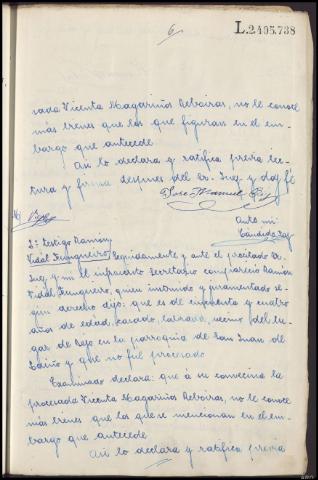 6
L.2405.738
sada Vicenta Magariños Reboiras, no le conoce
más bienes que los que figuran en el em-
bargo que antecede.
Así lo declara y ratifica previa lec-
tura y firma despues del Sr. Juez y doy fé
José Manuel Rey
Ante mi
Cándido
2º Testigo Ramón
Vidal Frungueiro
Seguidamente y ante el precitado Sr.
Juez y mi el infrascrito Secretario compareció Ramón
Vidal Frungueiro, quien instruido y juramentado se-
gún derecho dijo: que es de cincuenta y cuatro
años de edad, casado, labrador, vecino del lu-
gar de Rejo en la parroquia de San Juan de
y que no fué procesado.
Examinado declara: que á su convecina la
procesada Vicenta Magariños Reboiras, no le conoce
más bienes que los que se mencionan en el em-
bargo que antecede.
Así lo declara y ratifica previa